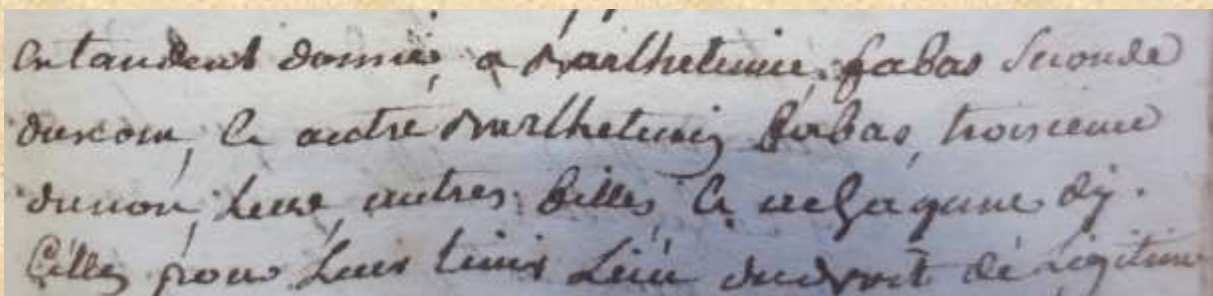 entandent donnié, a Barthelemie fabas seconde
dunom, & autre Barthelemie fabas, troisieme
dunon, leurs autres filles, & a chaqune dy.
celles pour leur tenir lieu dudroit de legitime